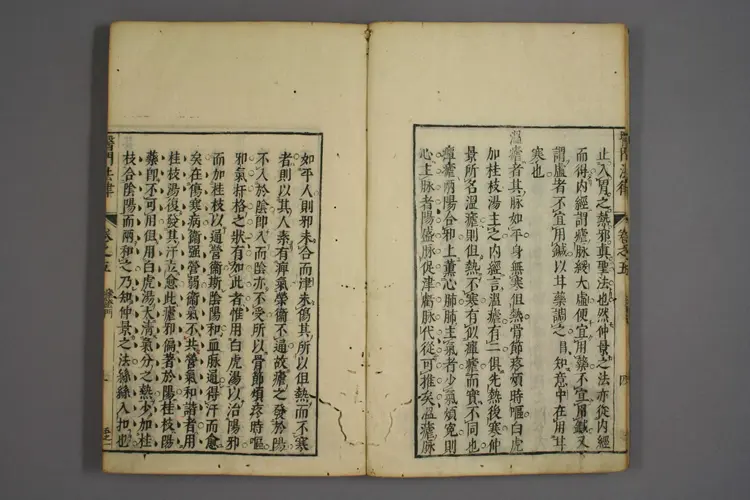 醫門法律 卷之五
止入胃之熱邪真聖法也然仲景之法亦從內經
而得內經謂瘧脈緩大虛便宜用藥不宜用鍼又
謂虛者不宜用鍼以甘藥調之卽知意中在用甘
寒也
溫瘧者其脈如平身無寒但熱骨節疼煩時嘔白虎
加桂枝湯主之內經言溫瘧有二俱先熱後寒仲
景所名溫瘧則但熱不寒有似癉瘧而實不同也
癉瘧兩陽合邪上薰心肺肺主氣者少氣煩冤則
心主脈者陽盛脈促津虧脈代從可推矣溫瘧脈
如平人則邪未合而津未傷其所以但熱而不寒
者則以其人素有痹氣榮衞不通故瘧之發於陽
不入於陰卽入而陰亦不受所以骨節煩疼時嘔
邪氣扞格之狀有如此者惟用白虎湯以治陽邪
而加桂枝以通營衞斯陰陽和血脈通得汗而愈
矣在傷寒病衞強營弱衞氣不共營氣和諧者用
桂枝湯復發其汗立愈此瘧邪偏著於陽桂枝陽
藥卽不可用但用白虎湯大清氣分之熱少加桂
枝合陰陽而兩和之乃知仲景之法絲絲入扣也
醫門法律 卷之五